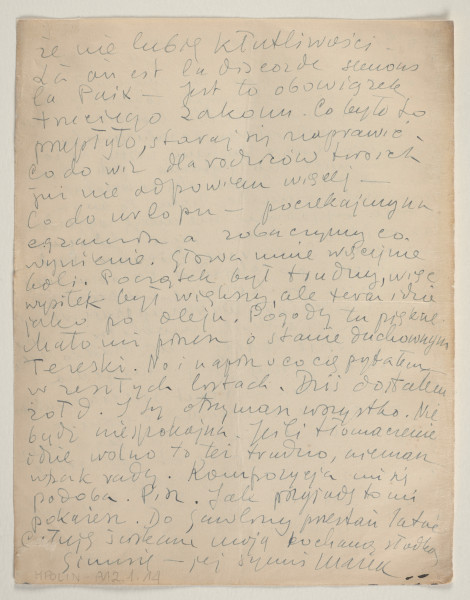 że nie lubię kłutliwości.
Là où est la discorde semons
la Paix — jest to obowiązek
trzeciego zakonu. Co było to
przeszło, staraj się naprawić.
Co do wiz dla rodziców twoich
już nie odpowiem więcej —
Co do urlopu — poczekajmy na
egzamin a zobaczymy co
wyniknie. Głowa mnie wściejnie
boli. Początek był trudny, więc
wysiłek był większy, ale teraz idzie
jako po oleju. Pogody tu piękne.
Mało mi piszesz o stanie duchowym
Tereski. No i napisz o co cię pytałem
w zeszłych listach. Dziś dostałem
żołd. I Ty otrzymasz wszystko. Nie
bądź niespokojna. Jeśli tłomaczenie
idzie wolno to też trudno, niema
wszak rady. Kompozycja mi się
podoba. Pisz. Jak przyjadę to mi
pokażesz. Do przestań latać
Całuję ściskam moją kochaną słodką
Simusię — jej Symuś Marek
MPOLIN A12.1.14